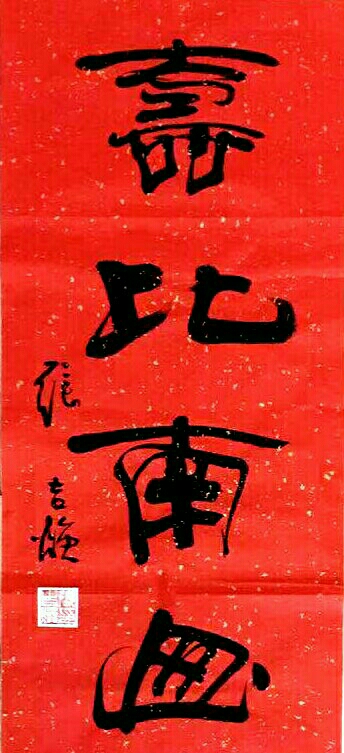 壽比南山
张吉